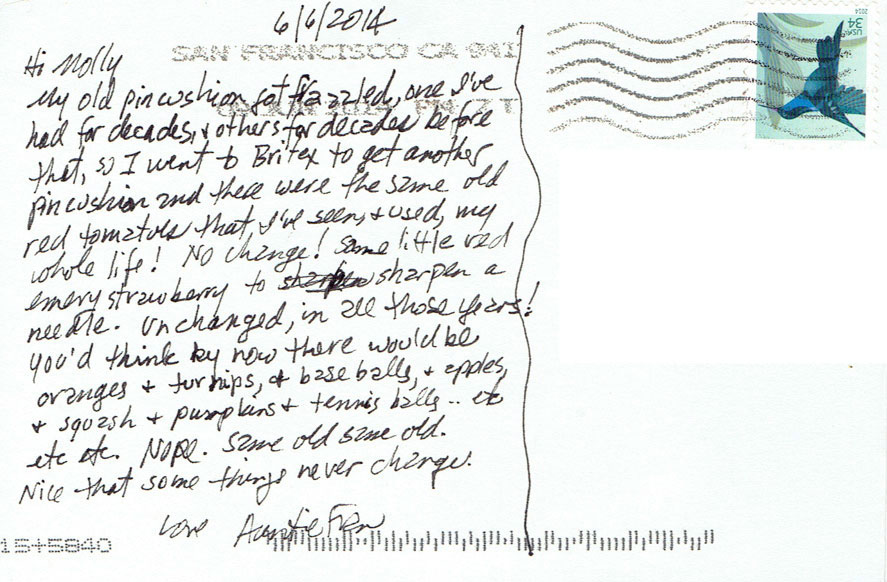 6/6/2014
SAN FRANCISCO CA 941
USA 34
2014
Hi Molly
My old pincushion got frazzled, one I've
had for decades, & others for decades before
that, so I went to Britex to get another
pincushion and there were the same old
red tomatoes that I've seen, & used, my
whole life! No change! Same little red
emery strawberry to sharpen sharpen a
needle. Unchanged, in all those years!
You'd think by now there would be
oranges & turnips, & baseballs, & apples,
& squash & pumpkins & tennis balls .. etc
etc etc. Nope. Same old same old.
Nice that some things never change.
Love Auntie Fern
15+5840